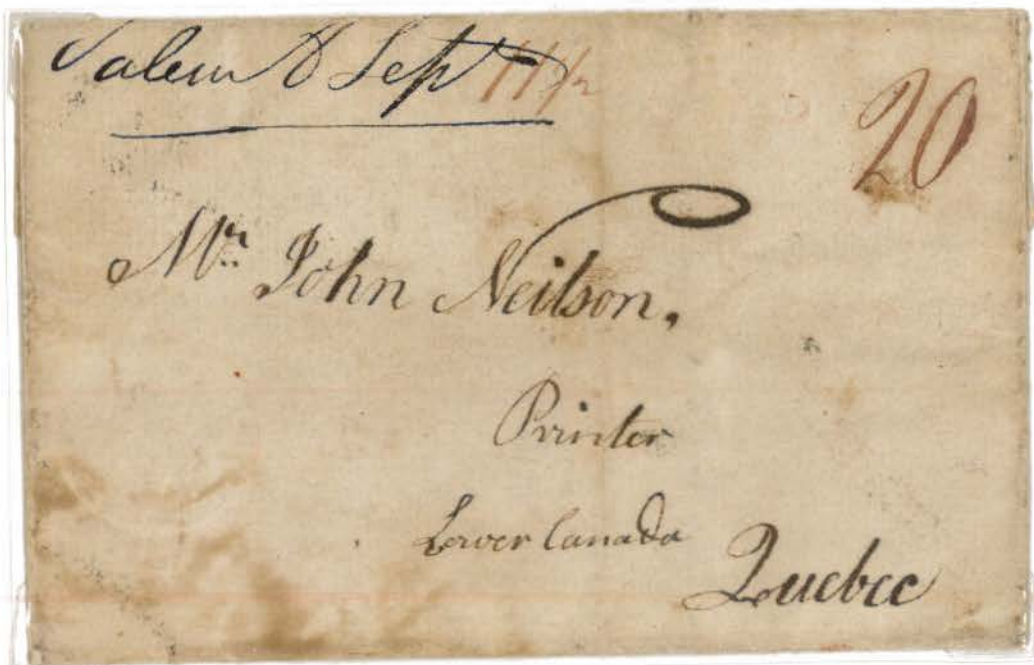 Salem 8 Sept 11½
20
Mr. John Neilson.
Printer
Lower Canada
Quebec